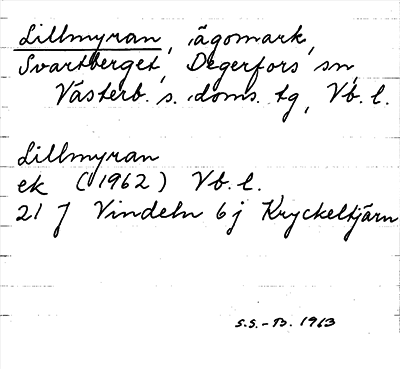 Lillmyran, ägomark,
Svartberget, Degerfors sn,
Västerb. s. doms. tg, Vb. l.
Lillmyran
ek (1962) Vb. l.
21 J Vindeln 6j Kryckeltjärn
S.S.-B. 1963